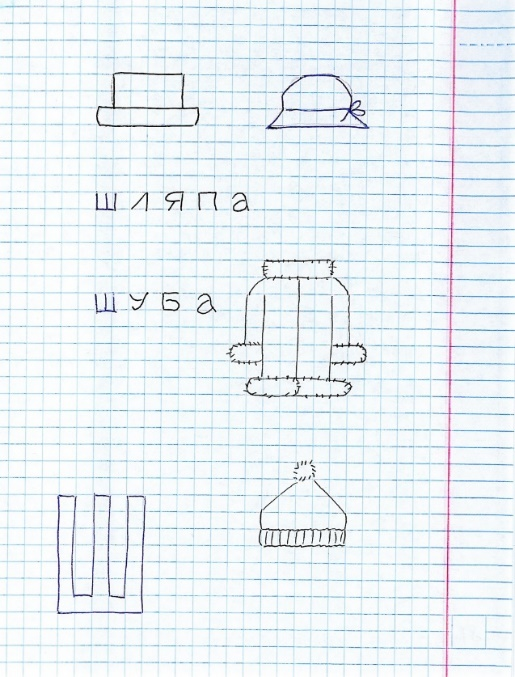 шляпа
шуба
Ш